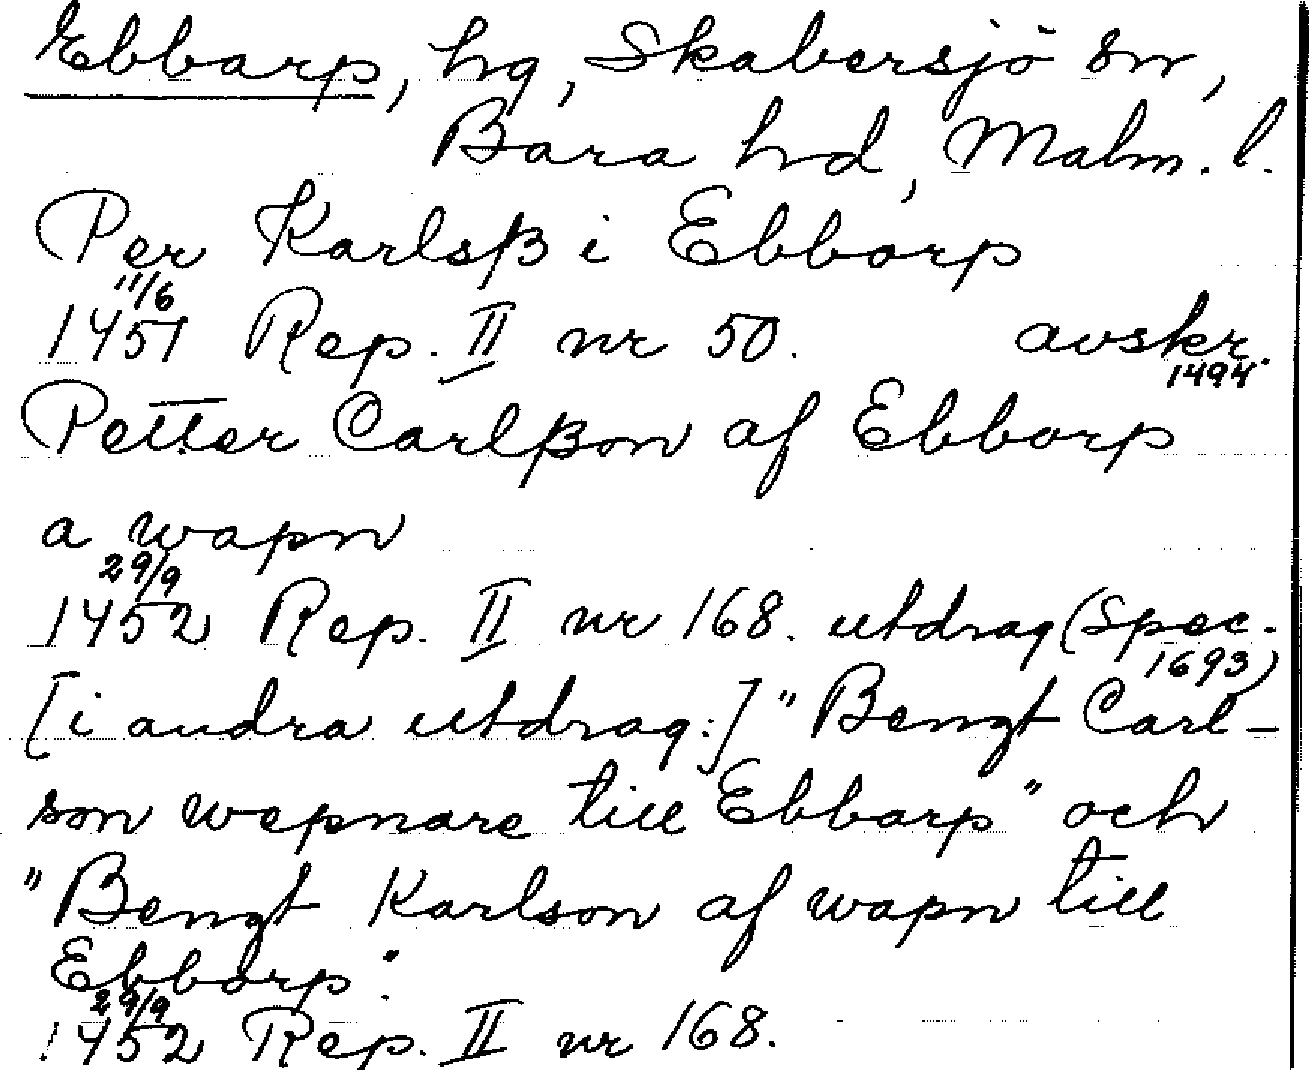 Ebbarp, hg, Skabersjö sn,
Bara hd, Malm. l.
Per Karlsß i Ebborp
11/6
1451 Rep. II nr 50. avskr.
1494
Petter Carlßon af Ebborp
a wapn
29/9
1452 Rep. II nr 168. utdrag (Spec.
1693)
[i andra utdrag:] "Bengt Carl-
son wepnare till Ebbarp" och
"Bengt Karlson af wapn till
Ebborp".
29/9
1452 Rep. II nr 168.